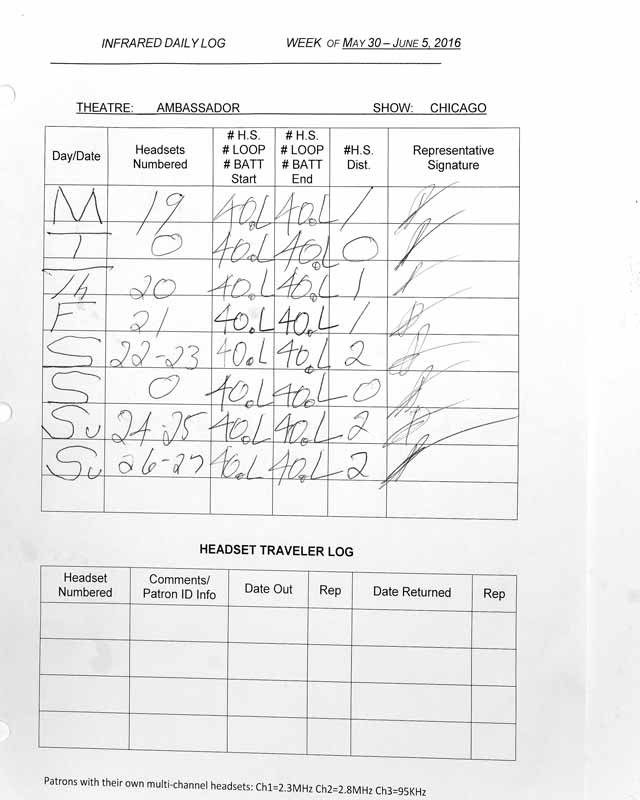 INFRARED DAILY LOG WEEK OF MAY 30 – JUNE 5, 2016
THEATRE: AMBASSADOR SHOW: CHICAGO
Day/Date Headsets Numbered # H.S. # LOOP # BATT Start # H.S. # LOOP # BATT End #H.S. Dist. Representative Signature
M 19 40.L 40.L 1
T 0 40.L 40.L 0
Th 20 40.L 40.L 1
F 21 40.L 40.L 1
S 22-23 40.L 40.L 2
S 0 40.L 40.L 0
Su 24-25 40.L 40.L 2
Su 26-27 40.L 40.L 2
HEADSET TRAVELER LOG
Headset Numbered Comments/ Patron ID Info Date Out Rep Date Returned Rep
Patrons with their own multi-channel headsets: Ch1=2.3MHz Ch2=2.8MHz Ch3=95KHz